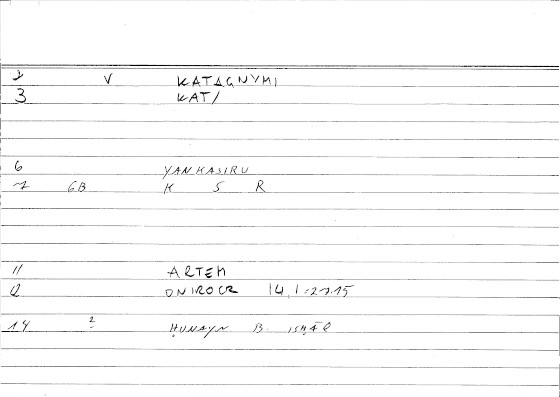 2 V KATAGNYMI
3 KAT/
6 YANKASIRU
7 6B K S R
11 ARTEM
12 ONIROCR 14,1-27.15
14 2 ḤUNAYN B. ISḤĀQ